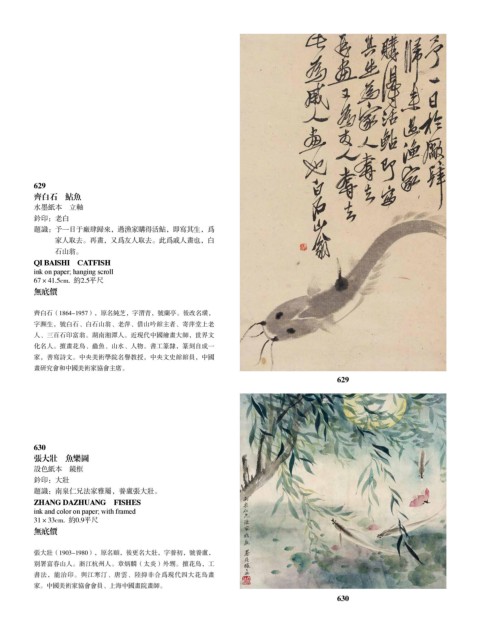 629
齊白石 鮎魚
水墨紙本 立軸
鈐印：老白
題識：予一日于廠肆歸來，過漁家購得活鮎，即寫其生，爲
家人取去。再畫，又爲友人取去。此爲戚人畫也，白
石山翁。
QI BAISHI CATFISH
ink on paper; hanging scroll
67 x 41.5cm. 約2.5平尺
無底價
齊白石（1864-1957），原名純芝，字渭青，號蘭亭。後改名璜，
字瀕生，號白石、白石山翁、老萍、借山吟館主者、寄萍堂上老
人、三百石印富翁。湖南湘潭人。近現代中國繪畫大師，世界文
化名人。擅畫花鳥、蟲魚、山水、人物。書工篆隸，篆刻自成一
家，善寫詩文。中央美術學院名譽教授，中央文史館館員，中國
畫研究會和中國美術家協會主席。
予一日於廠肆
歸來過漁家
購得活鮎即寫
其生爲家人奪去
再畫又爲友人奪去
此爲戚人畫也白石山翁
629
630
張大壯 魚樂圖
設色紙本 鏡框
鈐印：大壯
題識：南泉仁兄法家雅屬，養廬張大壯。
ZHANG DAZHUANG FISHES
ink and color on paper; with framed
31 x 33cm. 約0.9平尺
無底價
張大壯（1903-1980），原名頤，後更名大壯，字養初，號養廬，
別署富春山人，浙江杭州人。章炳麟（太炎）外甥。擅花鳥，工
書法，能治印。與江寒汀、唐雲、陸抑非合爲現代四大花鳥畫
家。中國美術家協會會員、上海中國畫院畫師。
630